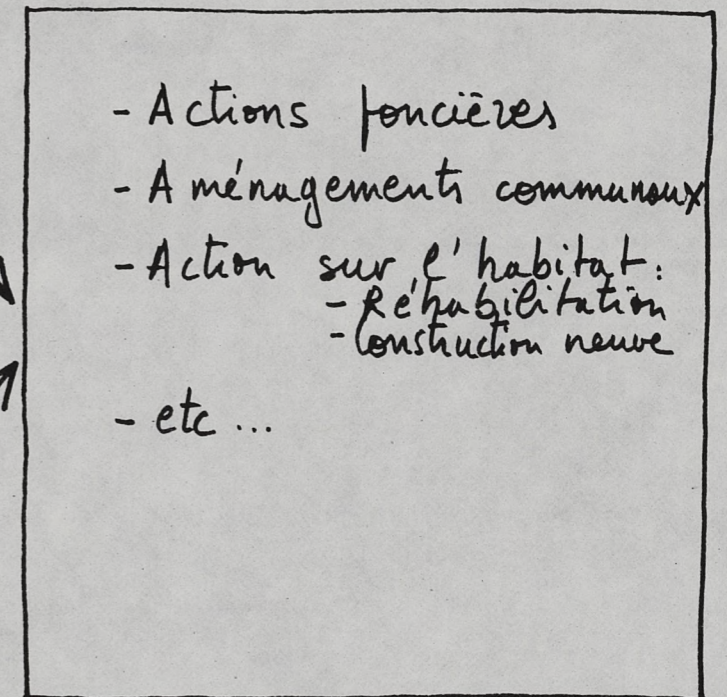 - Actions foncières
- Aménagements communaux
- Action sur l'habitat:
- Réhabilitation
- Construction neuve
- etc...